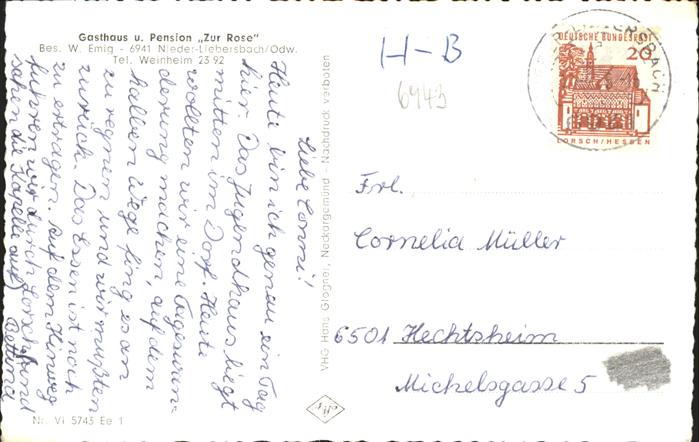 Gasthaus u. Pension „Zur Rose"
Bes. W. Emig - 6941 Nieder-Liebersbach/Odw.
Tel. Weinheim 23 92
Liebe Conni!
Heute bin ich genau ein Tag
hier. Das Jugendhaus liegt
mitten im Dorf. Heute
wollten wir eine Tageswan-
derung machen, auf dem
halben Wege fing es an
zu regnen und wir mußten
zurück. Das Essen ist noch
zu ertragen. Auf dem Hinweg
fuhren wir durch Lorsch und
sahen die Kapelle auf
Bettina
Nr. Vi 5743 Ee 1
VHG Hans Glogner, Neckargemünd - Nachdruck verboten
H-B
6943
DEUTSCHE BUNDESPOST
20
LORSCH/HESSEN
Frl.
Cornelia Müller
6501 Hechtsheim
Michelsgasse 5